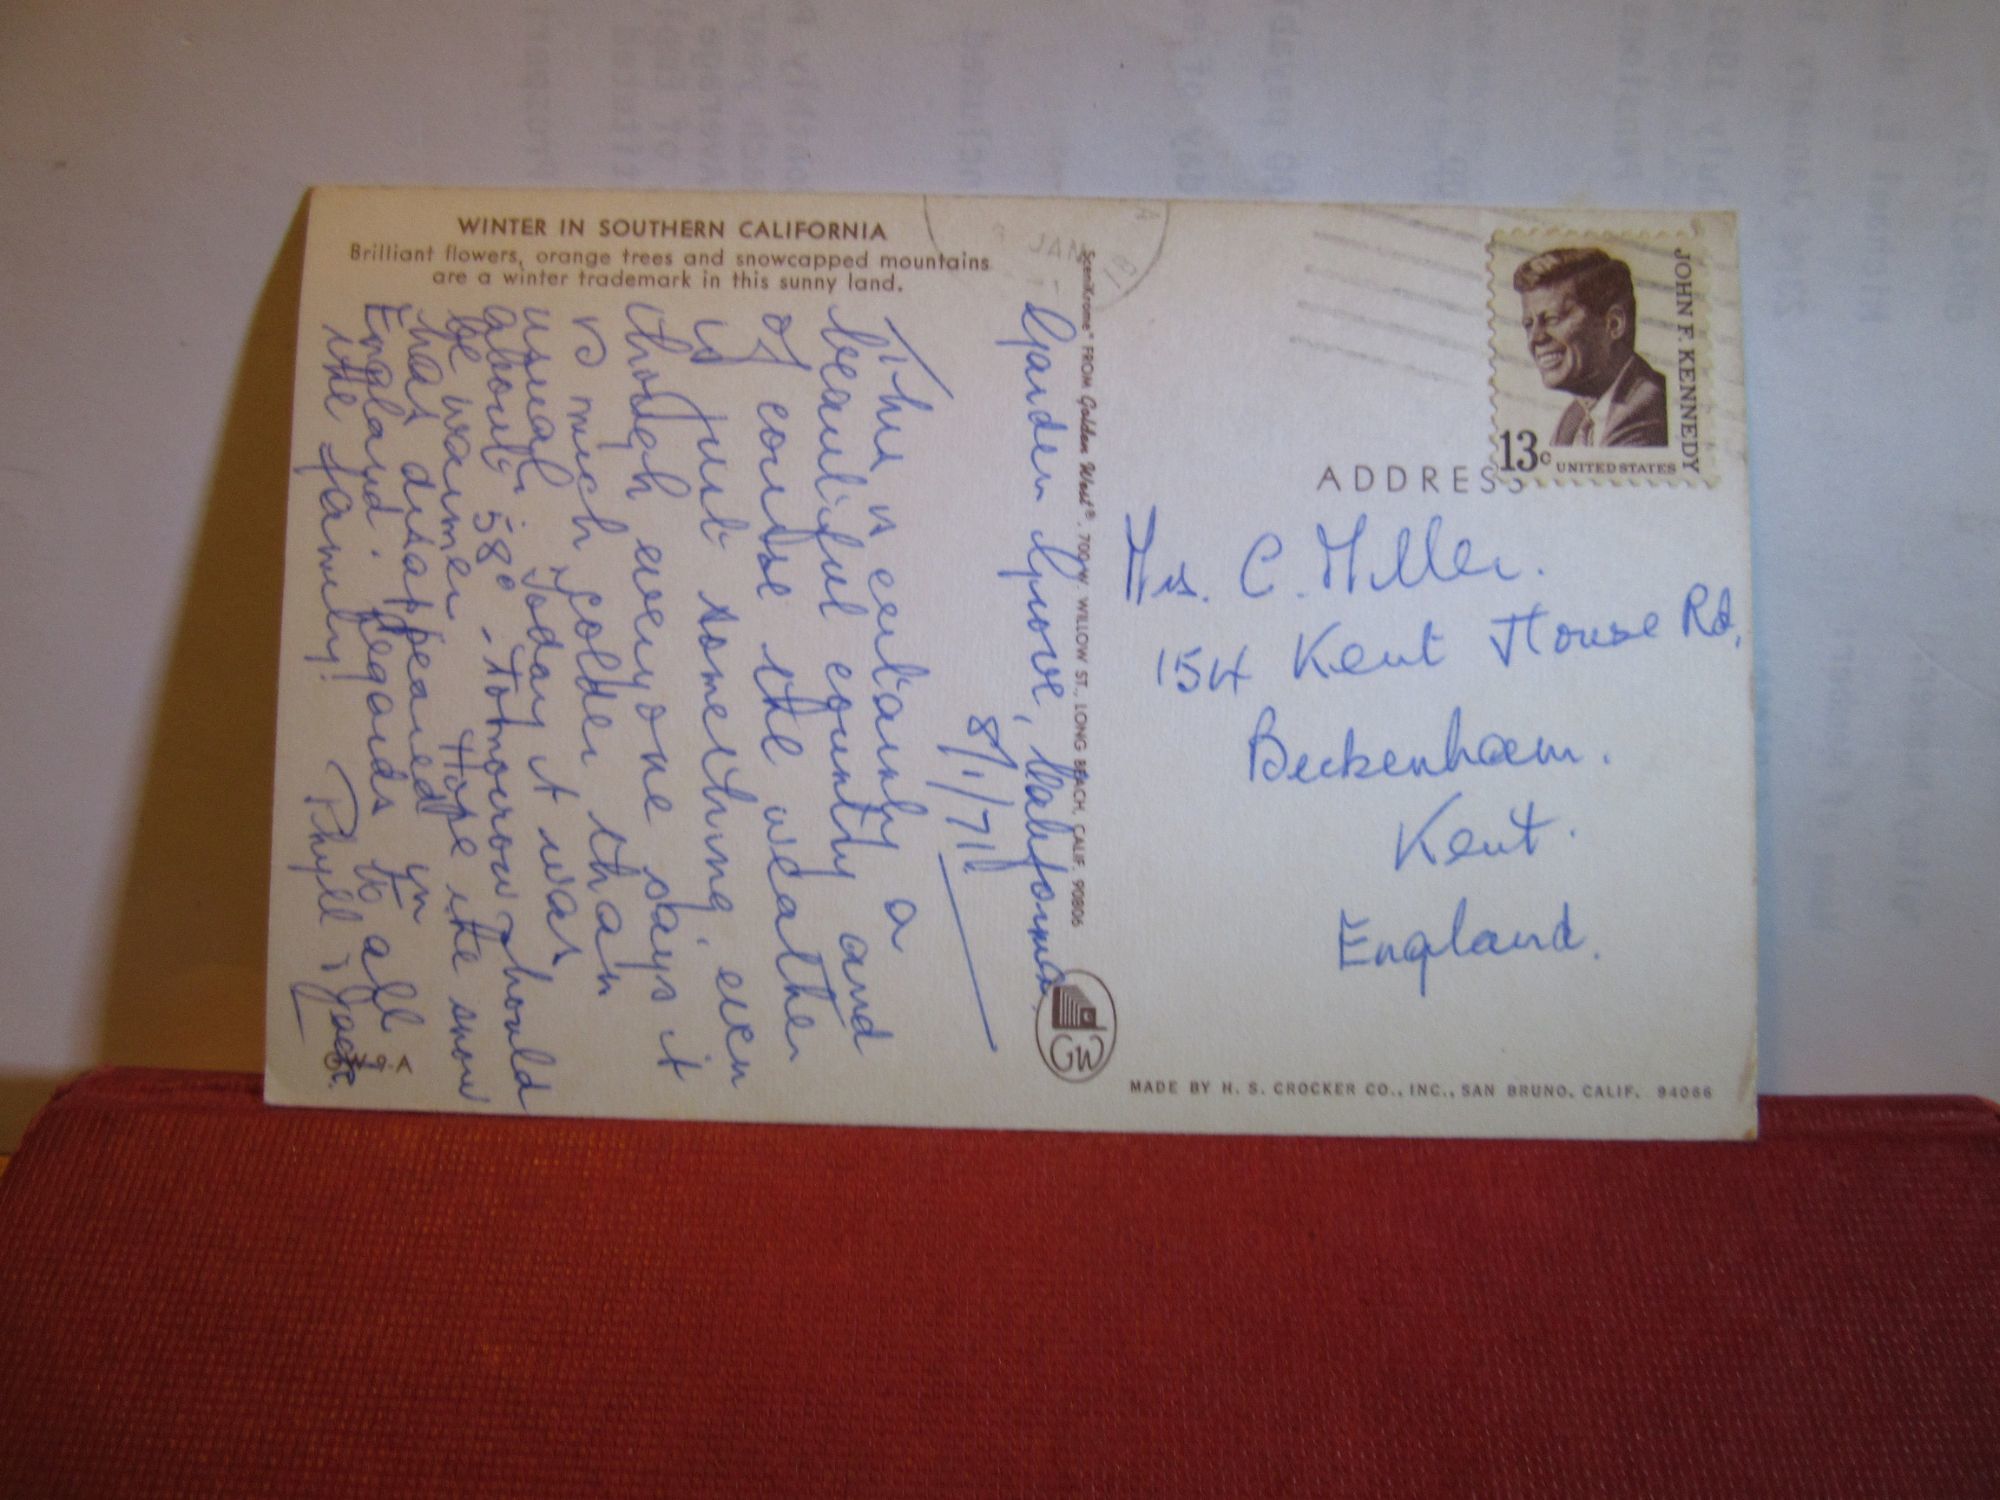 WINTER IN SOUTHERN CALIFORNIA
Brilliant flowers, orange trees and snowcapped mountains
are a winter trademark in this sunny land.
Garden Grove, California.
8/1/71
This is certainly a
beautiful country and
of course the weather
is just something, even
though everyone says it
is much colder than
usual. Today it was
about 58° - tomorrow should
be warmer. Hope the snow
has disappeared in
England. Regards to all
the family!
Phyll & Jack.
GW9-A
ScenKrome® FROM Golden West®, 700 W. WILLOW ST., LONG BEACH, CALIF. 90806
JAN
GW
JOHN F. KENNEDY
13c UNITED STATES
ADDRESS
Mrs. C. Miller.
154 Kent House Rd,
Beckenham.
Kent.
England.
MADE BY H. S. CROCKER CO., INC., SAN BRUNO, CALIF. 94066